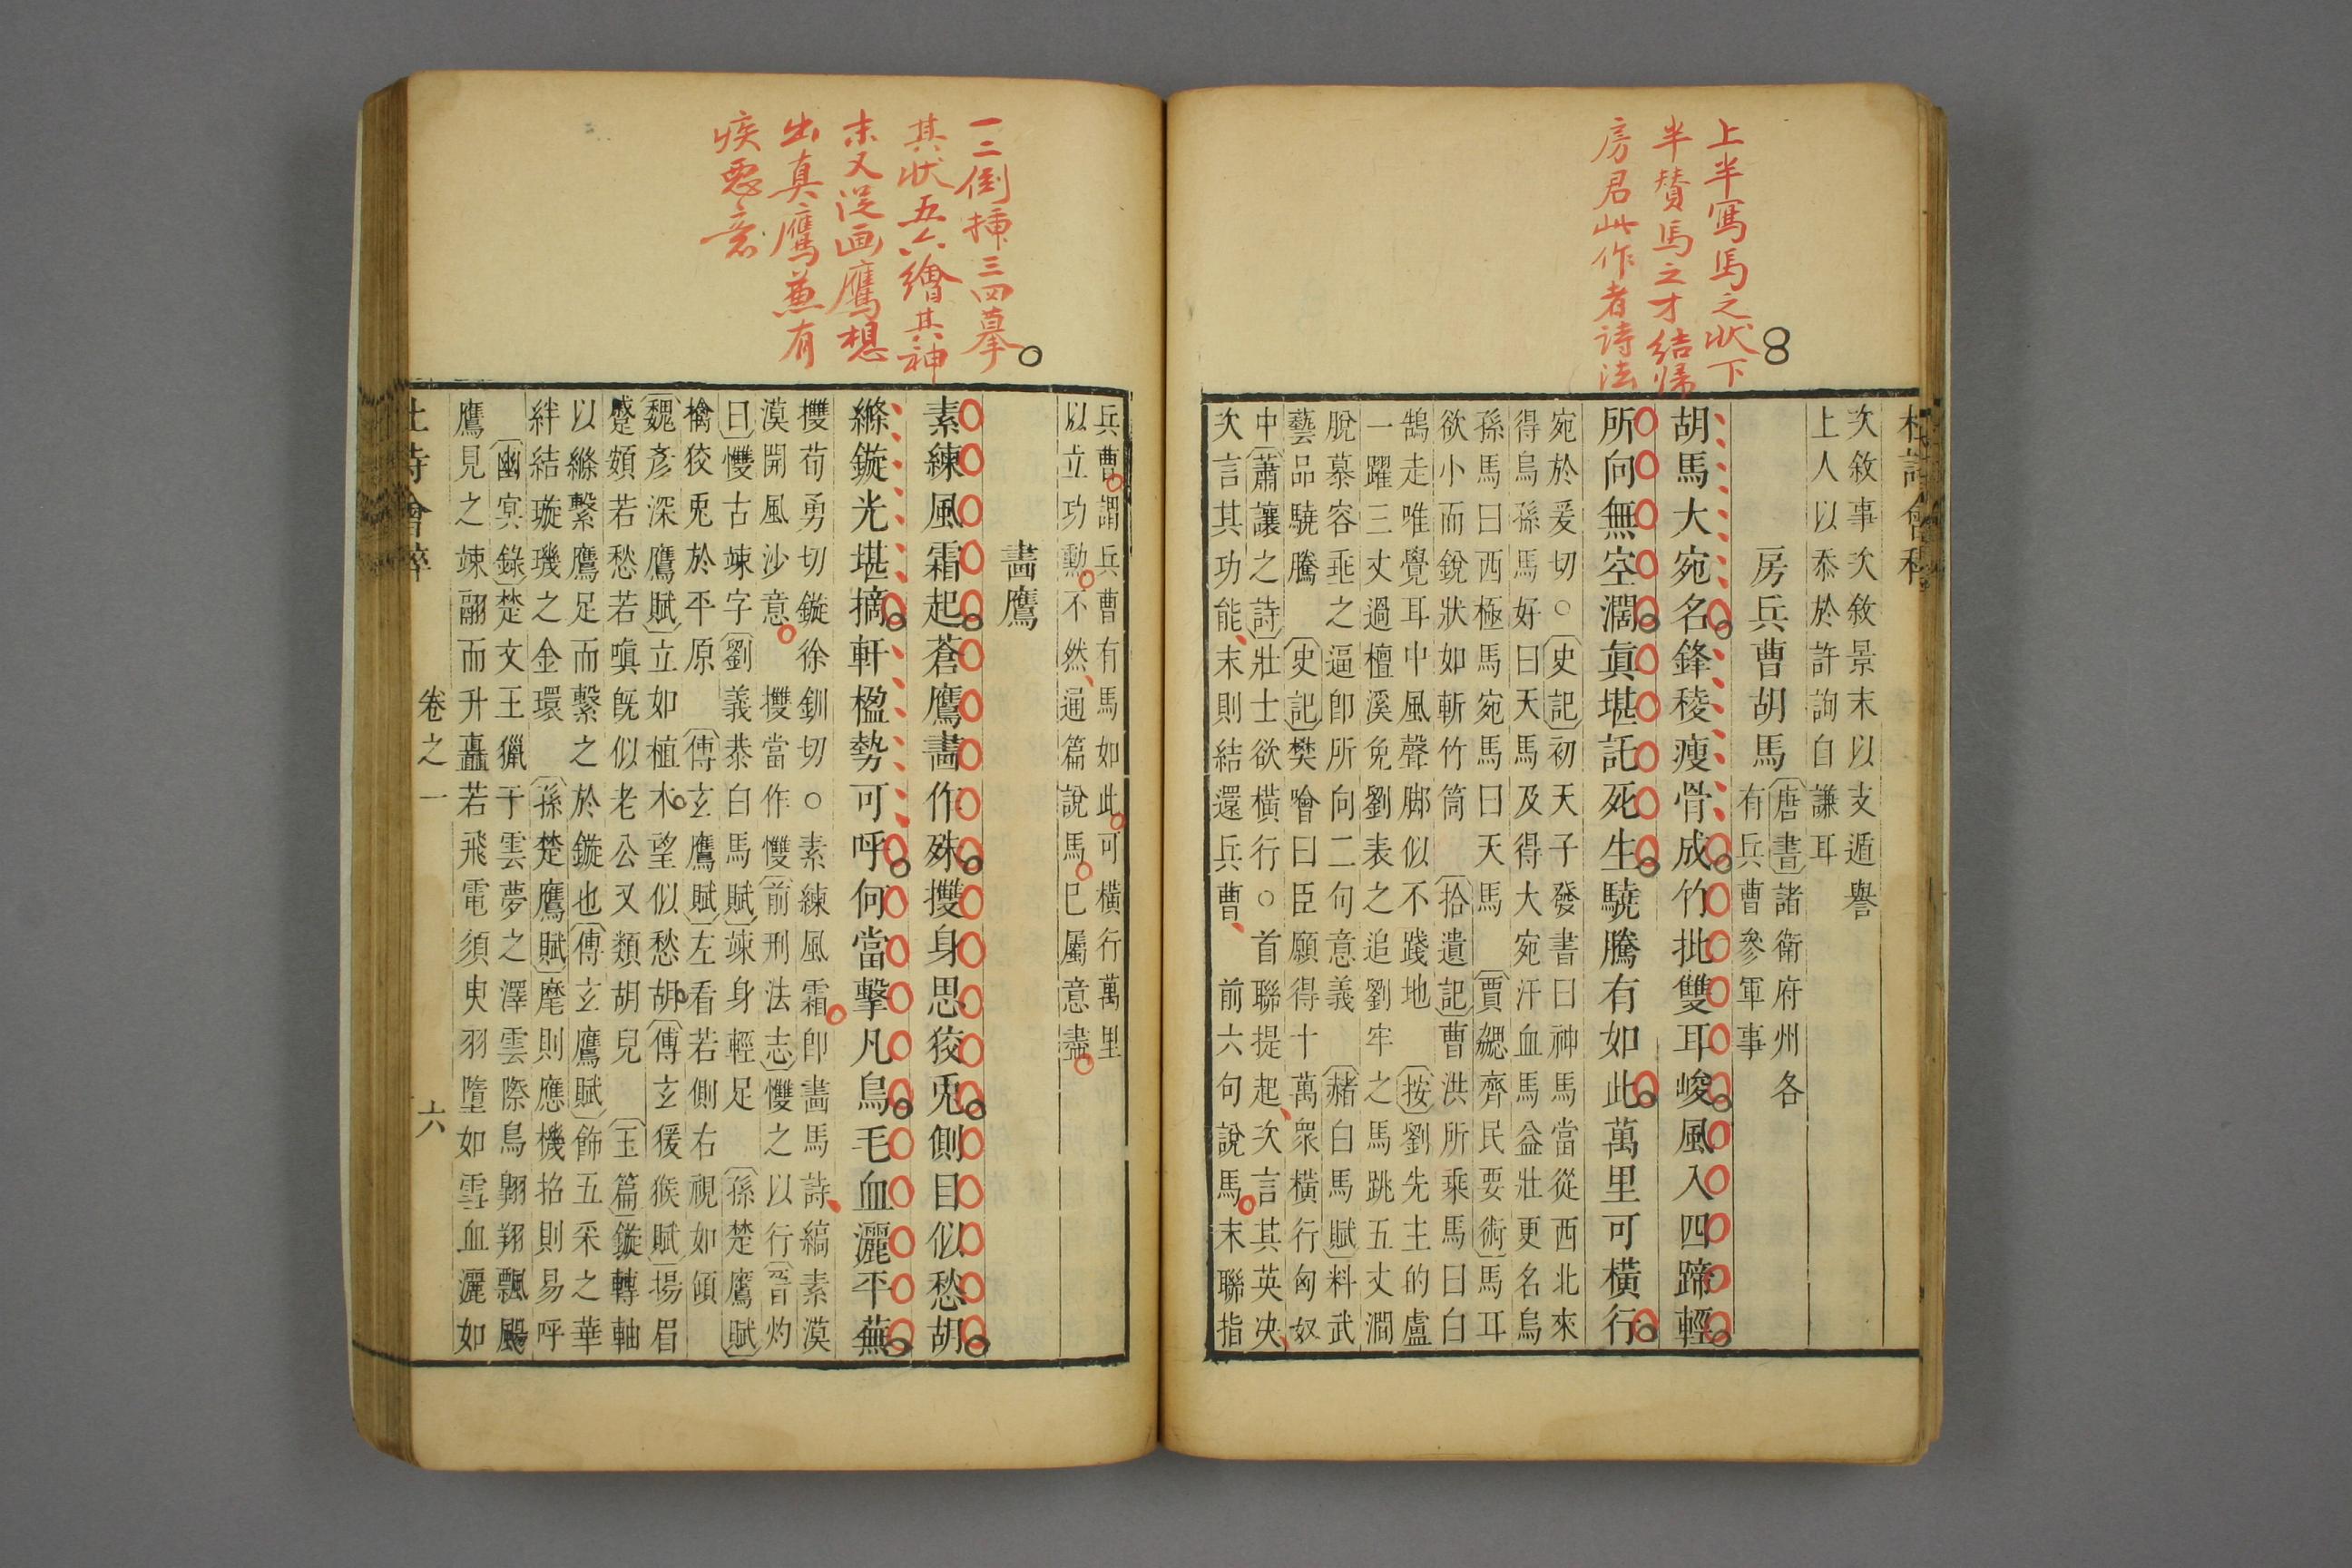 上半寫馬之狀下
半賛馬之才結歸
房君此作者詩法
次敘事次敘景末以支遁譽
上人以忝於許詢自謙耳
房兵曹胡馬
唐書諸衛府州各
有兵曹參軍事
胡馬大宛名鋒稜瘦骨成竹批雙耳峻風入四蹄輕
所向無空濶真堪託死生驍騰有如此萬里可橫行
宛於爰切○史記初天子發書曰神馬當從西北來
得烏孫馬好曰天馬及得大宛汗血馬益壯更名烏
孫馬曰西極馬宛馬曰天馬賈勰齊民要術馬耳
欲小而銳狀如斬竹筒拾遺記曹洪所乘馬曰白
鵠走唯覺耳中風聲脚似不踐地按劉先主的盧
一躍三丈過檀溪免劉表之追劉牢之馬跳五丈澗
脫慕容垂之逼卽所向二句意義赭白馬賦料武
藝品驍騰史記樊噲曰臣願得十萬衆橫行匈奴
中蕭讓之詩壯士欲橫行○首聯提起次言其英決
次言其功能末則結還兵曹前六句說馬末聯指
兵曹謂兵曹有馬如此可橫行萬里
以立功勳不然通篇說馬已屬意盡
一二倒揷三四摹
其狀五六繪其神
末又從画鷹想
出真鷹兼有
疾惡意
畫鷹
素練風霜起蒼鷹畫作殊㩳身思狡兎側目似愁胡
絛鏇光堪摘軒楹勢可呼何當擊凡鳥毛血灑平蕪
㩳荀勇切鏇徐釧切○素練風霜卽畫馬詩縞素漠
漠開風沙意㩳當作愯前刑法志愯之以行晉灼
曰愯古竦字劉義恭白馬賦竦身輕足孫楚鷹賦
擒狡兎於平原傅玄鷹賦左看若側右視如傾
魏彥深鷹賦立如植木望似愁胡傅玄猨猴賦揚眉
蹙頞若愁若嗔旣似老公又類胡兒玉篇鏇轉軸
以絛繫鷹足而繫之於鏇也傅玄鷹賦飾五采之華
絆結璇璣之金環孫楚鷹賦麾則應機招則易呼
幽冥錄楚文王獵于雲夢之澤雲際鳥翺翔飄颺
鷹見之竦翮而升矗若飛電須臾羽墮如雪血灑如
卷之一
六